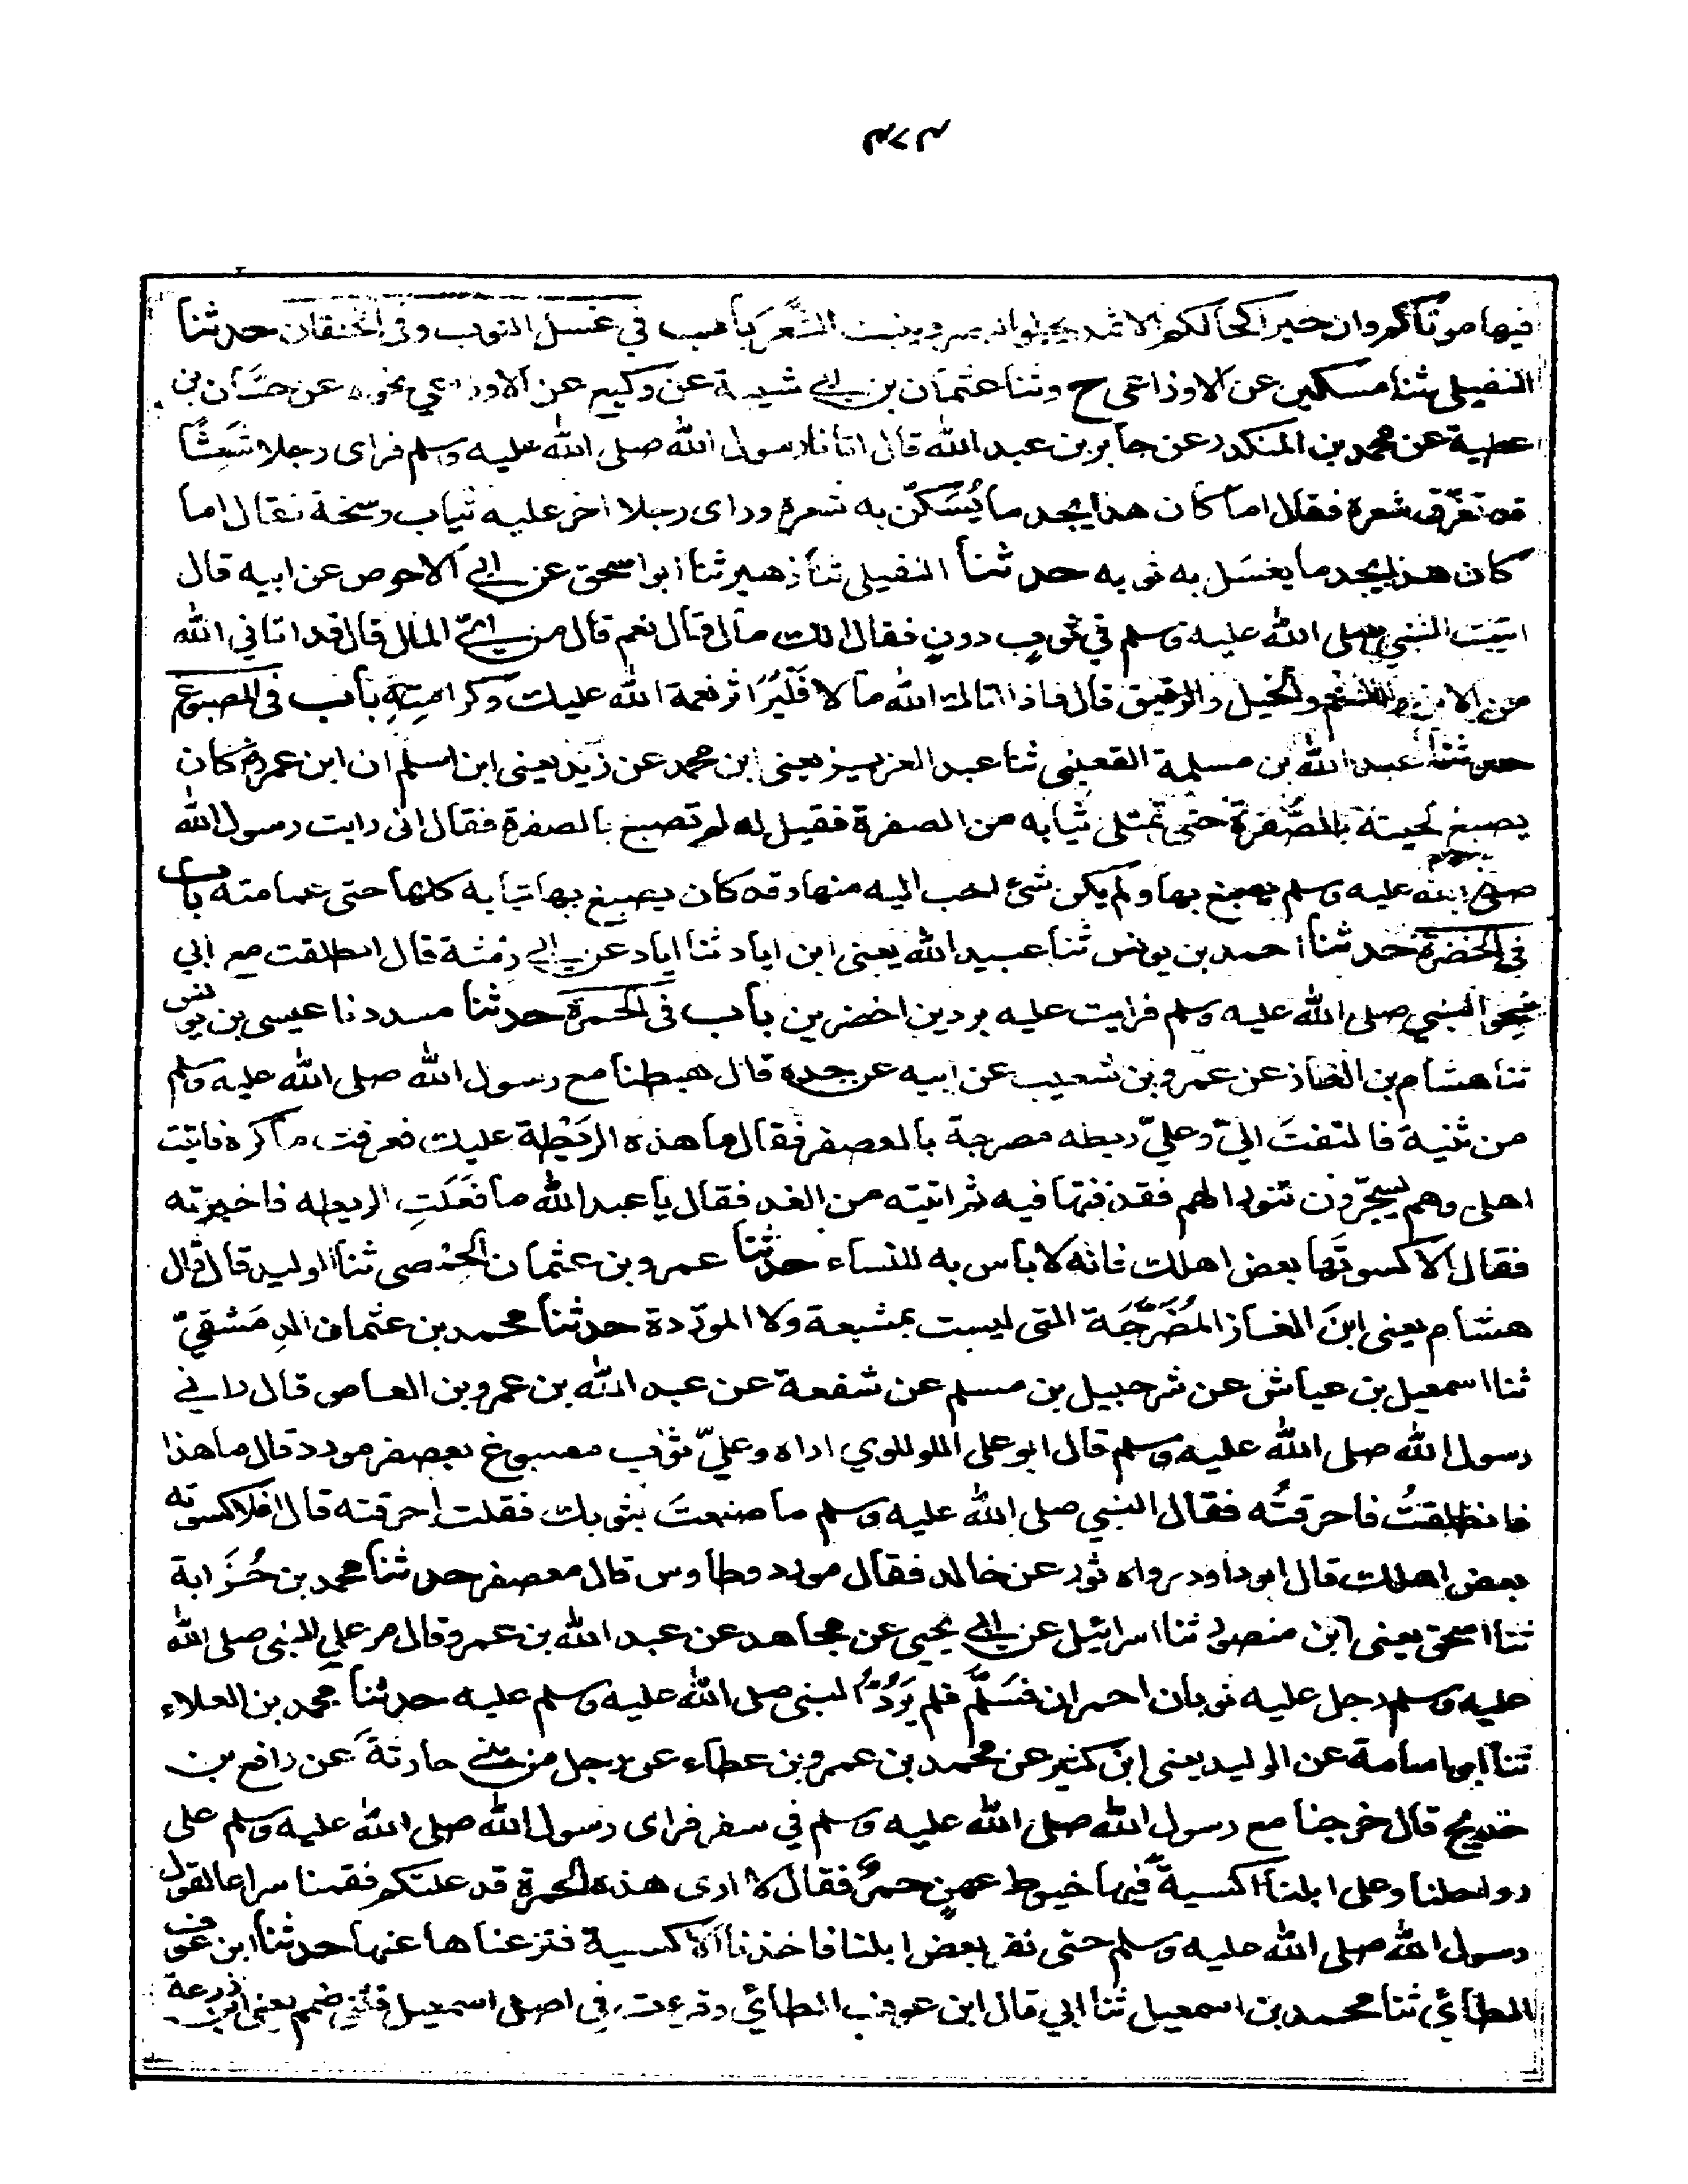 فيها موتاكم وان خير اكحالكم الاثمد يجلوا البصر وينبت الشَّعَر باب في غسل الثوب وفي الخلقان حدثنا
النفيلي ثنا مسكين عن الاوزاعي ح وثنا عثمان بن ابي شيبة عن وكيع عن الاوزاعي نحوه عن حسَّان بن
عطية عن محمد بن المنكدر عن جابر بن عبد الله قال اتانا رسول الله صلى الله عليه وسلم فراى رجلا شَعِثًا
قد تفرّق شعره فقال اما كان هذا يجد ما يُسَكّن به شعره وراى رجلا اخر عليه ثياب وسخة فقال اما
كان هذا يجد ما يغسَل به ثوبه حدثنا النفيلي ثنا زهير ثنا ابو اسحق عن ابي الاحوص عن ابيه قال
اتيت النبي صلى الله عليه وسلم في ثوبٍ دونٍ فقال الك مال قال نعم قال من ايّ المال قال قد اتاني الله
من الابل والغنم والخيل والرقيق قال فاذا اتاك الله مالا فَلْيُرَ اثر نعمة الله عليك وكرامتِهِ باب في المصبوغ
حدثنا عبد الله بن مسلمة القعنبي ثنا عبد العزيز يعني ابن محمد عن زيد يعني ابن اسلم ان ابن عمر كان
يصبغ لحيته بالصُّفرة حتى تمتلى ثيابه من الصفرة فقيل له لم تصبغ بالصفرة فقال انى رايت رسول الله
صلى الله عليه وسلم يصبغ بها ولم يكن شئ احب اليه منها وقد كان يصبغ بها ثيابه كلها حتى عمامته باب
في الخضرة حدثنا احمد بن يونس ثنا عبيد الله يعني ابن اياد ثنا اياد عن ابي رمثة قال انطلقت مع ابي
نحو النبي صلى الله عليه وسلم فرايت عليه بردين اخضرين باب في الحمرة حدثنا مسدد نا عيسى بن يونس
ثنا هشام بن الغاز عن عمرو بن شعيب عن ابيه عن جده قال هبطنا مع رسول الله صلى الله عليه وسلم
من ثنية فالتفتَ اليّ وعليّ ريطه مصرجة بالعصفر فقال ما هذه الريْطة عليك فعرفت ما كره فاتيت
اهلى وهم يسجّرون تنورا لهم فقذفتها فيه ثم اتيته من الغد فقال يا عبد الله ما فَعَلَتِ الريطه فاخبرته
فقال الا كسوتَها بعض اهلك فانه لا باس به للنساء حدثنا عمرو بن عثمان الحِمْصي ثنا الوليد قال قال
هشام يعني ابنَ الغاز المُضَرَّجَة التي ليست بمشبعة ولا المورّدة حدثنا محمد بن عثمان الدِمَشقيّ
ثنا اسمعيل بن عياش عن شرحبيل بن مسلم عن شفعة عن عبد الله بن عمرو بن العاص قال راني
رسول الله صلى الله عليه وسلم قال ابو على اللولوي اراه وعليّ ثوب مصبوغ بعصفر مورد قال ما هذا
فانطلقتُ فاحرقتُه فقال النبي صلى الله عليه وسلم ما صنعتَ بثوبك فقلت احرقته قال افلا كسوته
بعض اهلك قال ابو داود رواه ثور عن خالد فقال مورد وطاوس قال معصفر حدثنا محمد بن حُزَابة
ثنا اسحق يعني ابن منصور ثنا اسرائيل عن ابي يحيى عن مجاهد عن عبد الله بن عمرو قال مر على النبي صلى الله
عليه وسلم رجل عليه ثوبان احمران فسَلَّم فلم يَرُدّ النبي صلى الله عليه وسلم عليه حدثنا محمد بن العلاء
ثنا ابو اسامة عن الوليد يعني ابن كثير عن محمد بن عمرو بن عطاء عن رجل من بني حارثة عن رافع بن
خديج قال خرجنا مع رسول الله صلى الله عليه وسلم في سفر فراى رسول الله صلى الله عليه وسلم على
رواحلنا وعلى ابلنا اكسيةً فيها خيوط عهنٍ حمرٌ فقال الا ارى هذه الحمرة قد علتكم فقمنا سراعا لقول
رسول الله صلى الله عليه وسلم حتى نفر بعض ابلنا فاخذنا الاكسية فنزعناها عنها حدثنا ابن عوف
الطائي ثنا محمد بن اسمعيل ثنا ابي قال ابن عوف الطائي وقرءت في اصل اسمعيل قثنى ضمضم يعني ابن زرعة